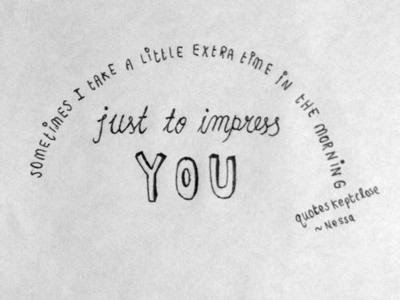 SOMETIMES I TAKE A LITTLE EXTRA TIME IN THE MORNING
just to impress
YOU
quoteskeptclose
~Nessa